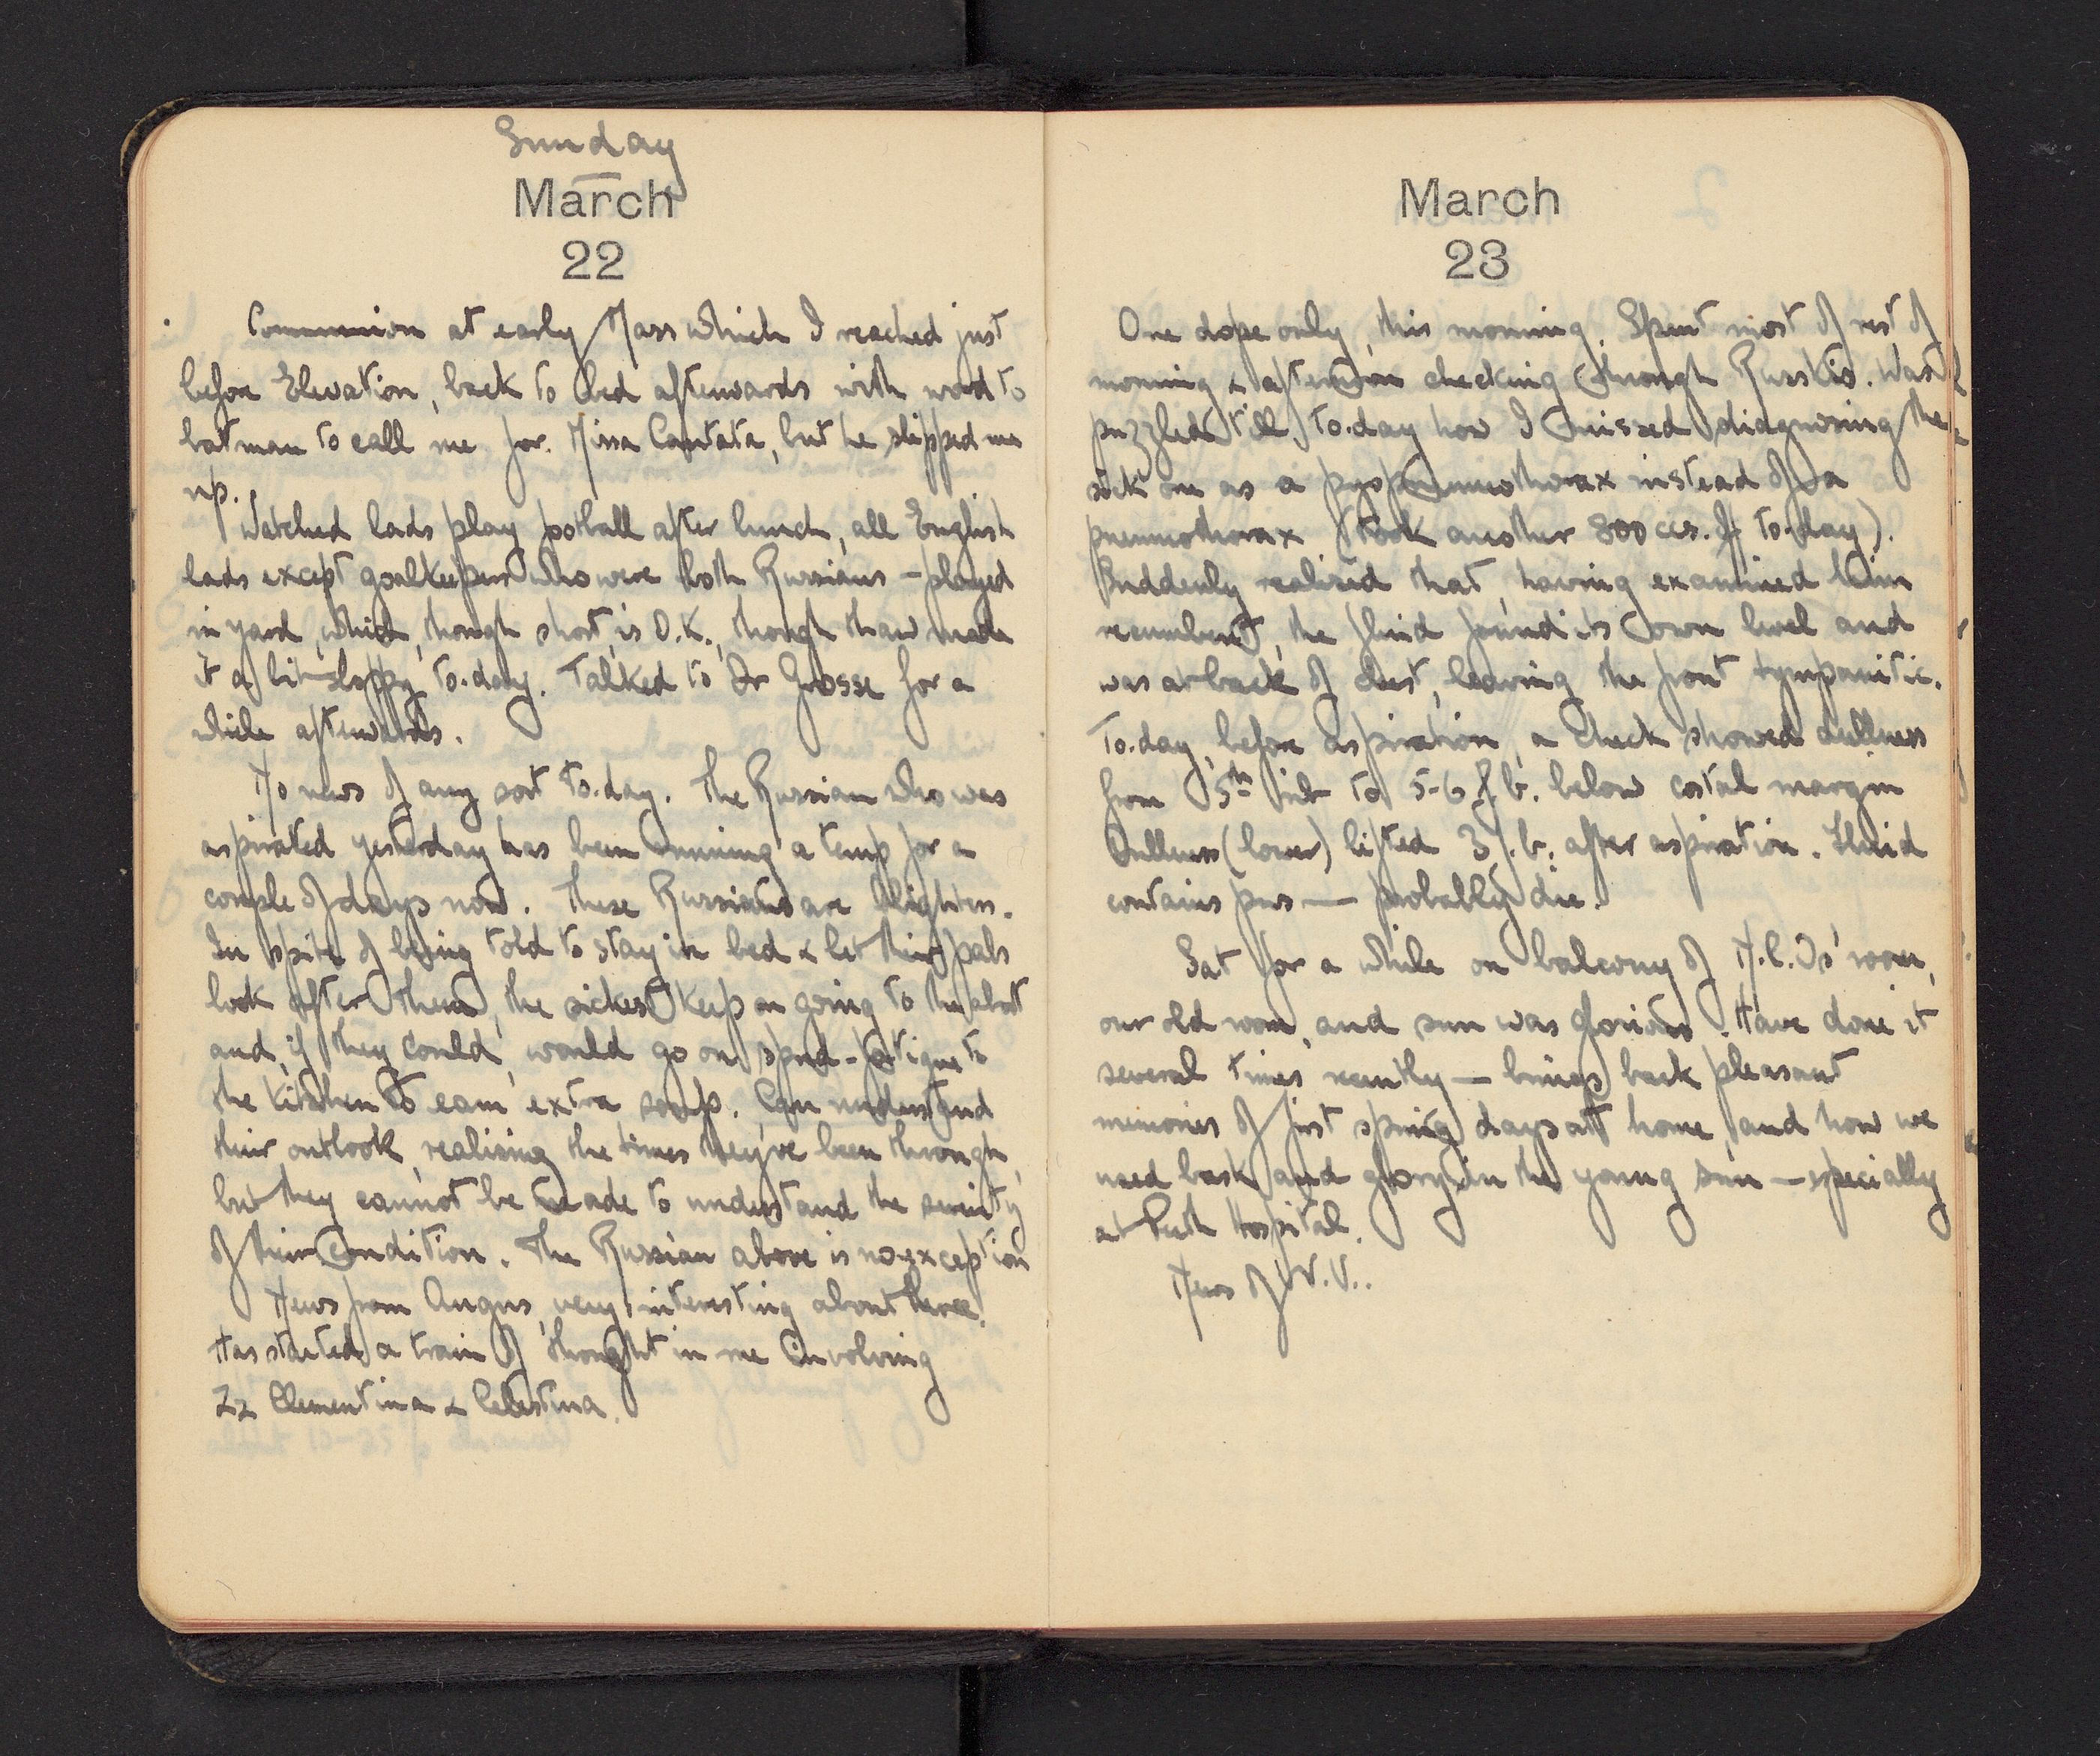 Sunday
March
22
Communion at early Mass which I reached just
before Elevation, back to bed afterwards with word to
batman to call me for Missa Cantata, but he slipped me
up.
Watched lads play football after lunch, all English
lads except goalkeepers who were both Russians – played
in yard, which, though short, is O.K., though thaw made
it a bit sloppy to-day. Talked to Dr Grosse for a
while afterwards.
No news of any sort to-day. The Russian who was
aspirated yesterday has been running a temp for a
couple of days now. These Russians are blighters.
In spite of being told to stay in bed & let their pals
look after them, the sickest keep on going to the abort
and, if they could, would go on spud-fatigue to
the kitchen to earn extra soup. Can understand
their outlook, realising the times they've been through,
but they cannot be made to understand the severity
of their condition. The Russian above is no exception
News from Angus, very interesting about
Has started a train of thought in me involving
Zz Clementina & Celestina.
March
23
One dope only, this morning. Spent most of rest of
morning & afternoon checking through Russkis. Was
puzzled till to-day how I missed diagnosing the
sick one as a pyopneumothorax instead of a
pneumothorax (took another 800 ccs. off to-day).
Suddenly realised that, having examined him
recumbent, the fluid found its own level and
was at back of chest, leaving the front tympanitic.
To-day, before aspiration, a check showed dullness
from 5th rib to 5-6 f.b. below costal margin
Dullness (lower) lifted 3 f.b. after aspiration. Fluid
contains pus — probably die.
Sat for a while on balcony of N.C.Os' room,
our old room, and sun was glorious. Have done it
several times recently — brings back pleasant
memories of first spring days at home, and how we
used bask and glory in the young sun — specially
at Perth Hospital.
News of V.V..